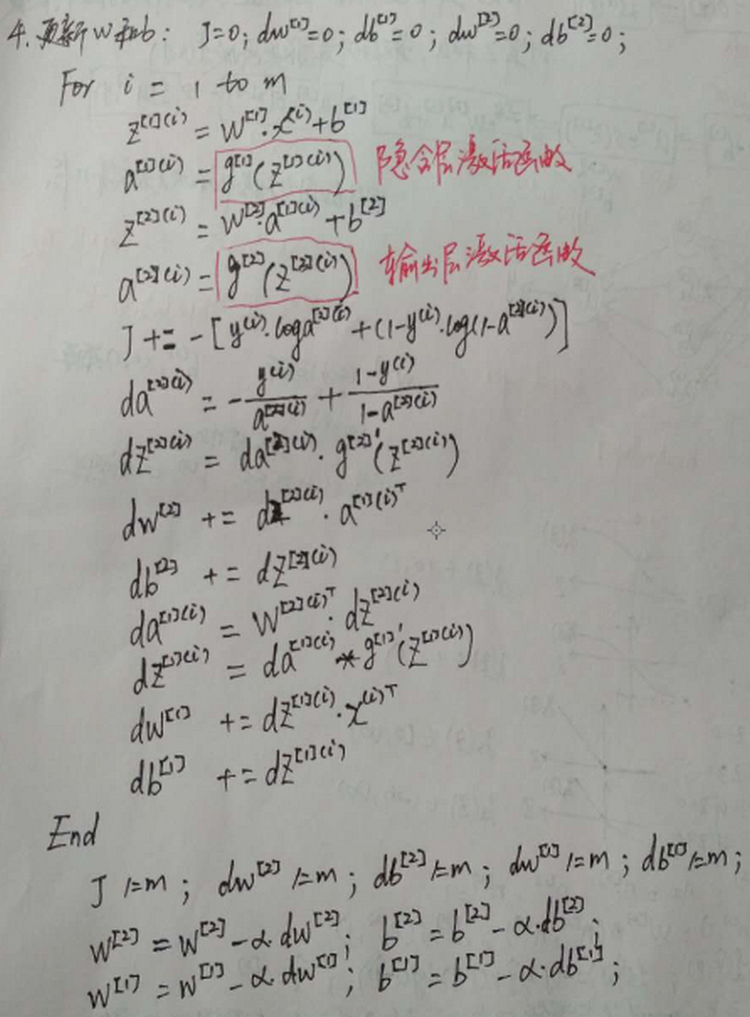 4. 更新w和b: J=0; dw^[1]=0; db^[1]=0; dw^[2]=0; db^[2]=0;
For i = 1 to m
z^[1](i) = W^[1]·x^(i)+b^[1]
a^[1](i) = g^[1](z^[1](i)) 隐含层激活函数
z^[2](i) = W^[2]·a^[1](i)+b^[2]
a^[2](i) = g^[2](z^[2](i)) 输出层激活函数
J += -[y^(i)·log a^[2](i) + (1-y^(i)·log(1-a^[2](i))]
da^[2](i) = - y^(i)/a^[2](i) + 1-y^(i)/1-a^[2](i)
dz^[2](i) = da^[2](i)·g^[2]'(z^[2](i))
dw^[2] += dz^[2](i)·a^[1](i)T
db^[2] += dz^[2](i)
da^[1](i) = W^[2](i)T·dz^[2](i)
dz^[1](i) = da^[1](i) * g^[1]'(z^[1](i))
dw^[1] += dz^[1](i)·x^(i)T
db^[1] += dz^[1](i)
End
J /=m; dw^[2] /=m; db^[2] /=m; dw^[1] /=m; db^[1] /=m;
w^[2] = w^[2]-α·dw^[2]; b^[2] = b^[2]-α·db^[2];
w^[1] = w^[1]-α·dw^[1]; b^[1] = b^[1]-α·db^[1];